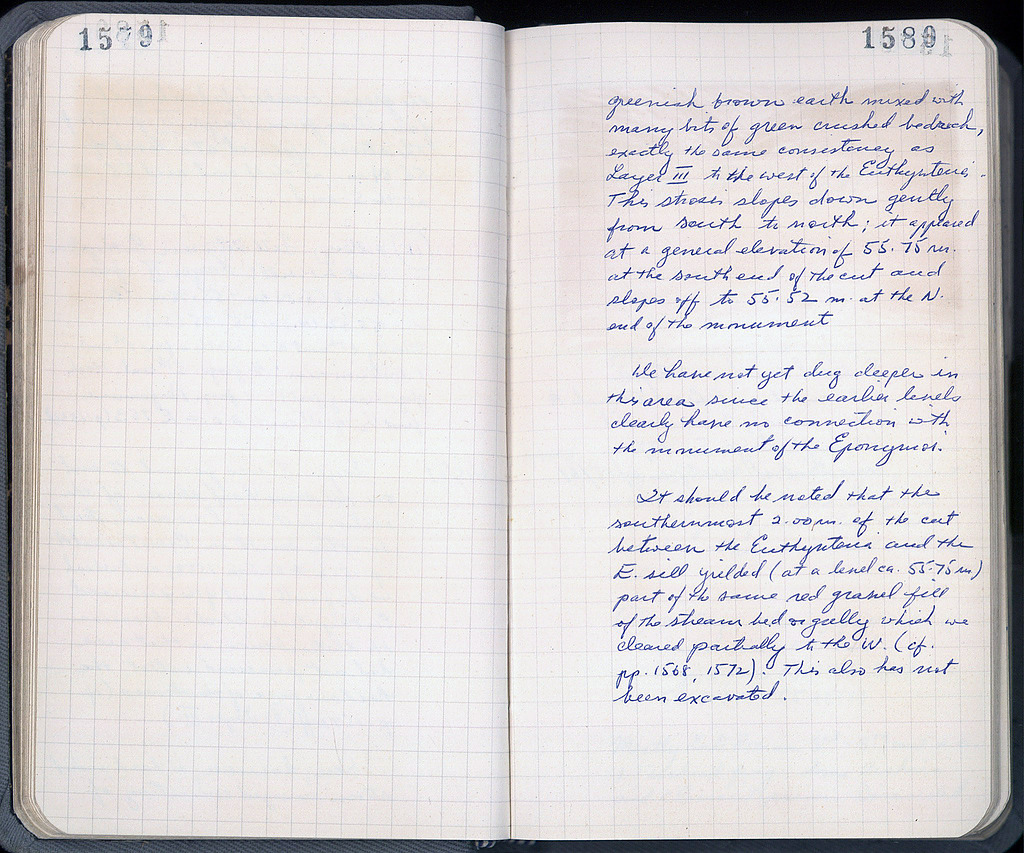 1579
1580
greenish brown earth mixed with
many bits of green crushed bedrock,
exactly the same consistency as
Layer III to the west of the Euthynteria.
This strosis slopes down gently
from south to north; it appeared
at a general elevation of 55.75 m.
at the south end of the cut and
slopes off to 55.52 m. at the N.
end of the monument
We have not yet dug deeper in
this area since the earlier levels
clearly have no connection with
the monument of the Eponymoi.
It should be noted that the
southernmost 2.00 m. of the cut
between the Euthynteria and the
E. sill yielded (at a level ca. 55.75 m)
part of the same red gravel fill
of the stream bed or gully which we
cleared partially to the W. (cf.
pp. 1568, 1572). This also has not
been excavated.